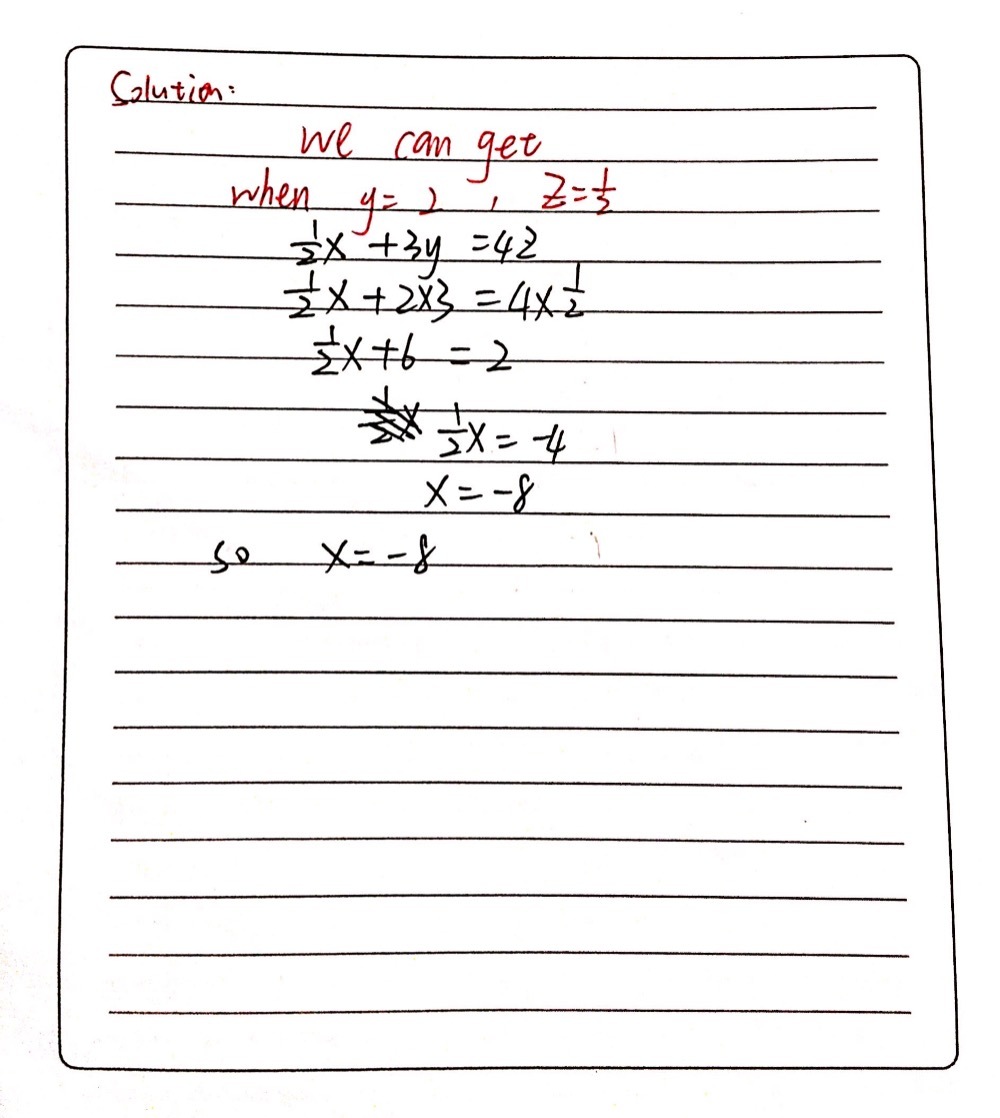 Solution:
we can get
when y=2, z=½
½x+3y=4z
½x+2×3=4×½
½x+6=2
½x=-4
x=-8
so x=-8